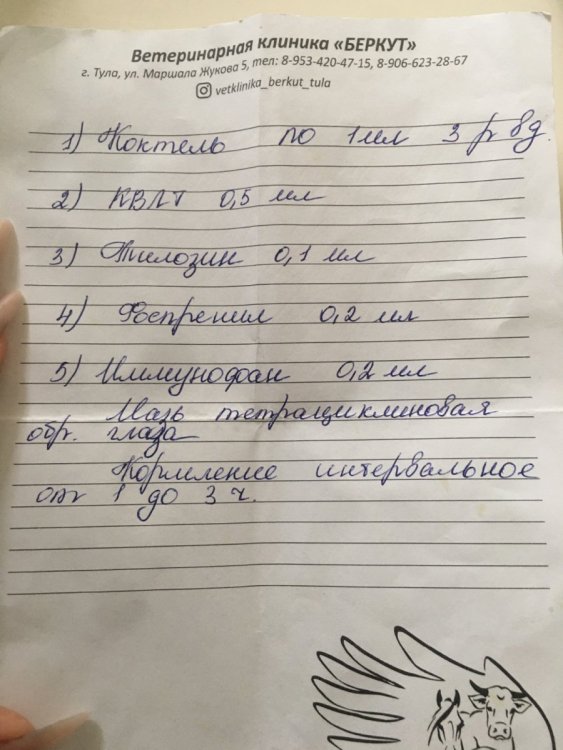 Ветеринарная клиника «БЕРКУТ»
г. Тула, ул. Маршала Жукова 5, тел: 8-953-420-47-15, 8-906-623-28-67
vetklinika_berkut_tula
1) Коктель по 1 мл 3 р в д.
2) КВЛТ 0,5 мл
3) Тилозин 0,1 мл
4) Фоспренил 0,2 мл
5) Иммунофан 0,2 мл
Мазь тетрациклиновая
обр. глаза
Кормление интервальное
от 1 до 3 ч.